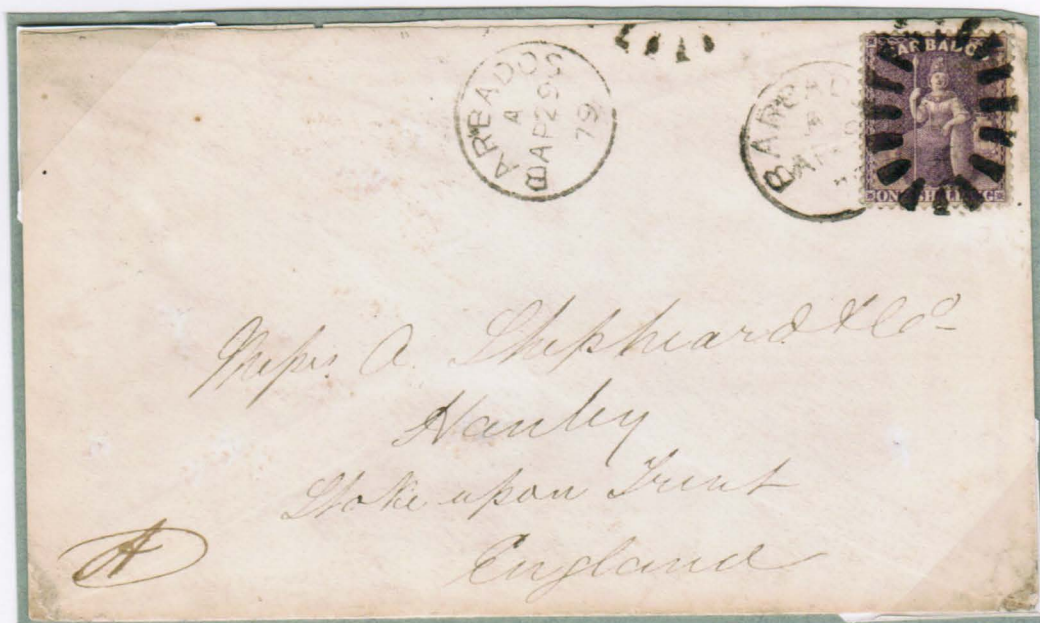 BARBADOS
A
AP 29
79
BARBAD
AP
ARBADO
ONE SHILLING
Messrs A. Shepheard & Co
Hanley
Stoke upon Trent
England
A